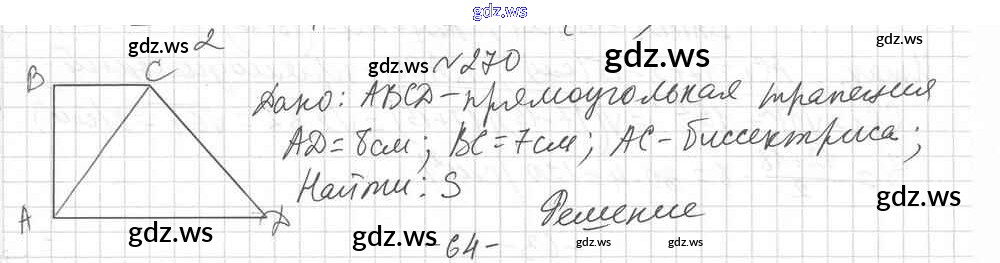 gdz.ws
2
gdz.ws
gdz.ws
№270
gdz.ws
gdz.ws
B
C
Дано: ABCD - прямоугольная трапеция
AD = 8см; BC = 7см; AC - биссектриса;
Найти: S
gdz.ws
A
D
Решение
gdz.ws
gdz.ws
-64-
gdz.ws
gdz.ws